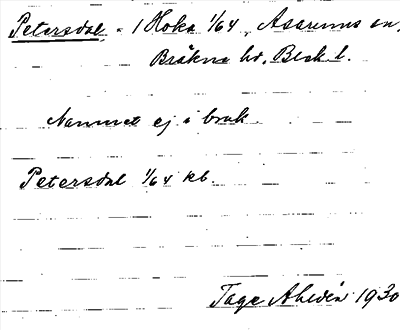 Petersdal = 1 Hoka 1/64, Asarums sn,
Bräkne hd, Blek. l.
Namnet ej i bruk
Petersdal 1/64 kb.
Tage Ahldén 1930